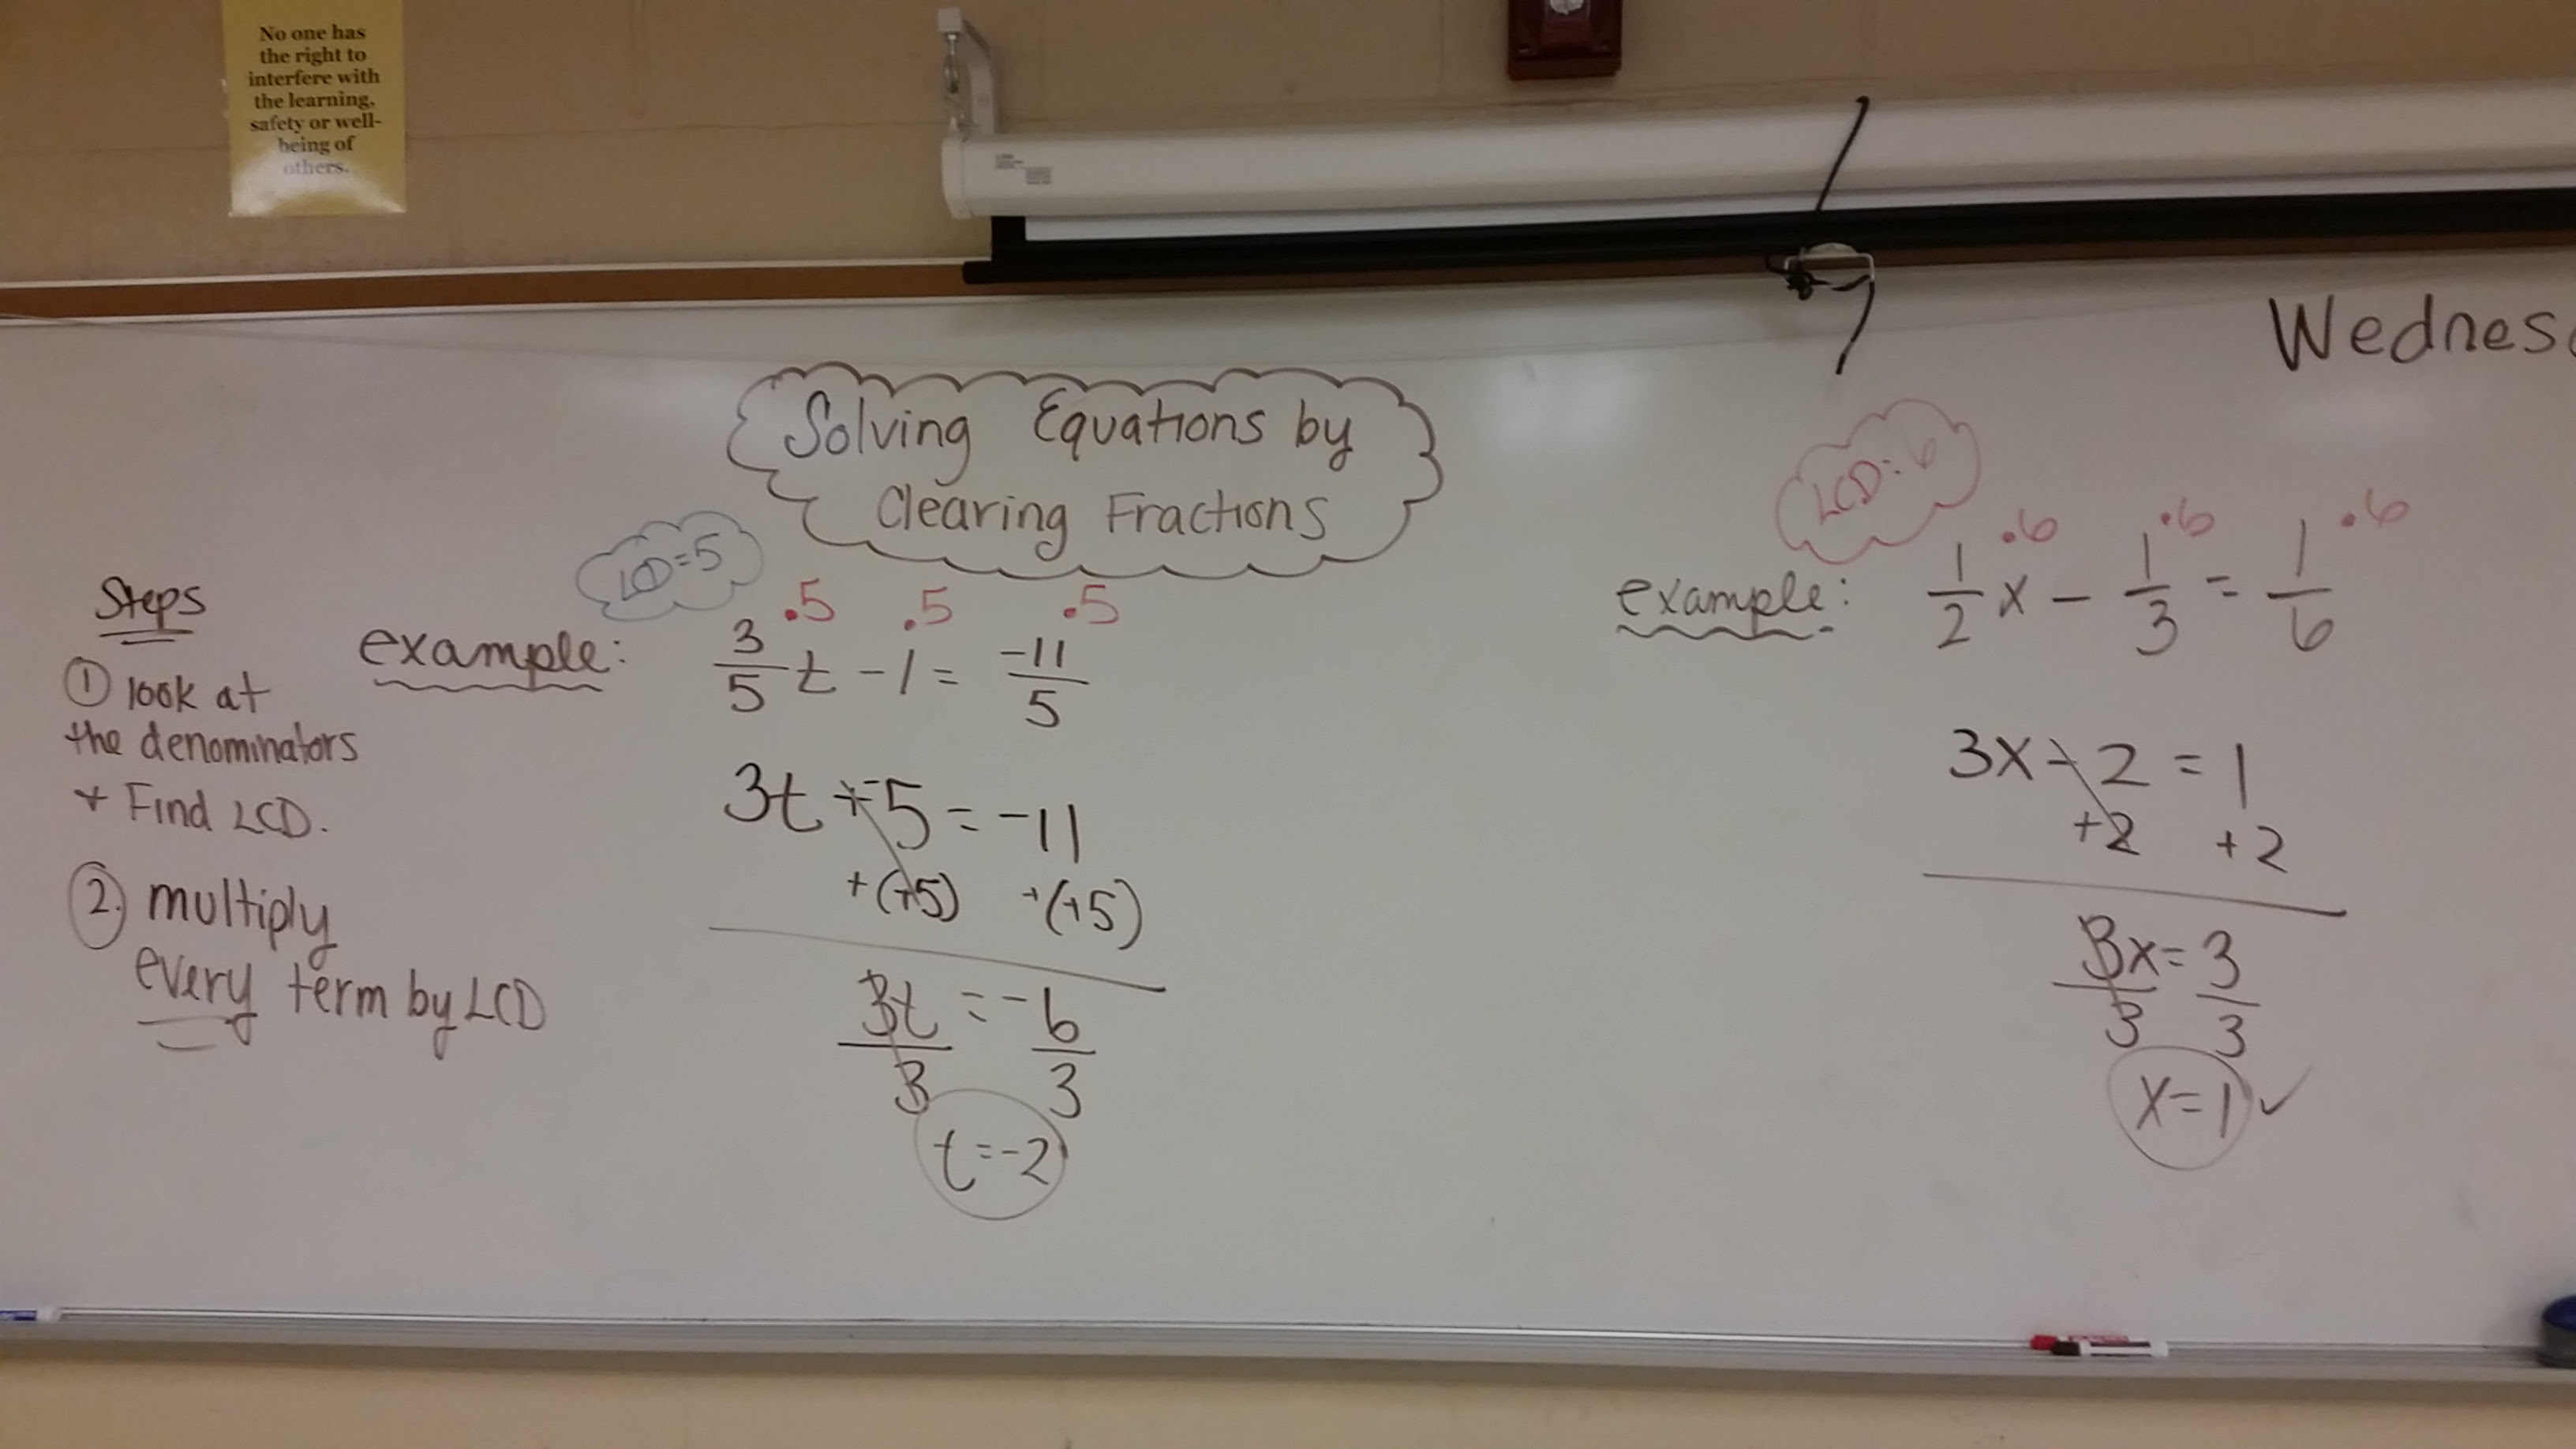 No one has
the right to
interfere with
the learning,
safety or well-
being of
others.
Wednes
Solving Equations by
Clearing Fractions
Steps
① look at
the denominators
+ Find LCD.
② multiply
every term by LCD
LCD=5
·5 ·5 ·5
example: 3/5 t - 1 = -11/5
3t + -5 = -11
+(+5) +(+5)
3t = -6
3 3
t = -2
LCD=6
·6 ·6 ·6
example: 1/2 x - 1/3 = 1/6
3x - 2 = 1
+2 +2
3x = 3
3 3
x = 1 ✓